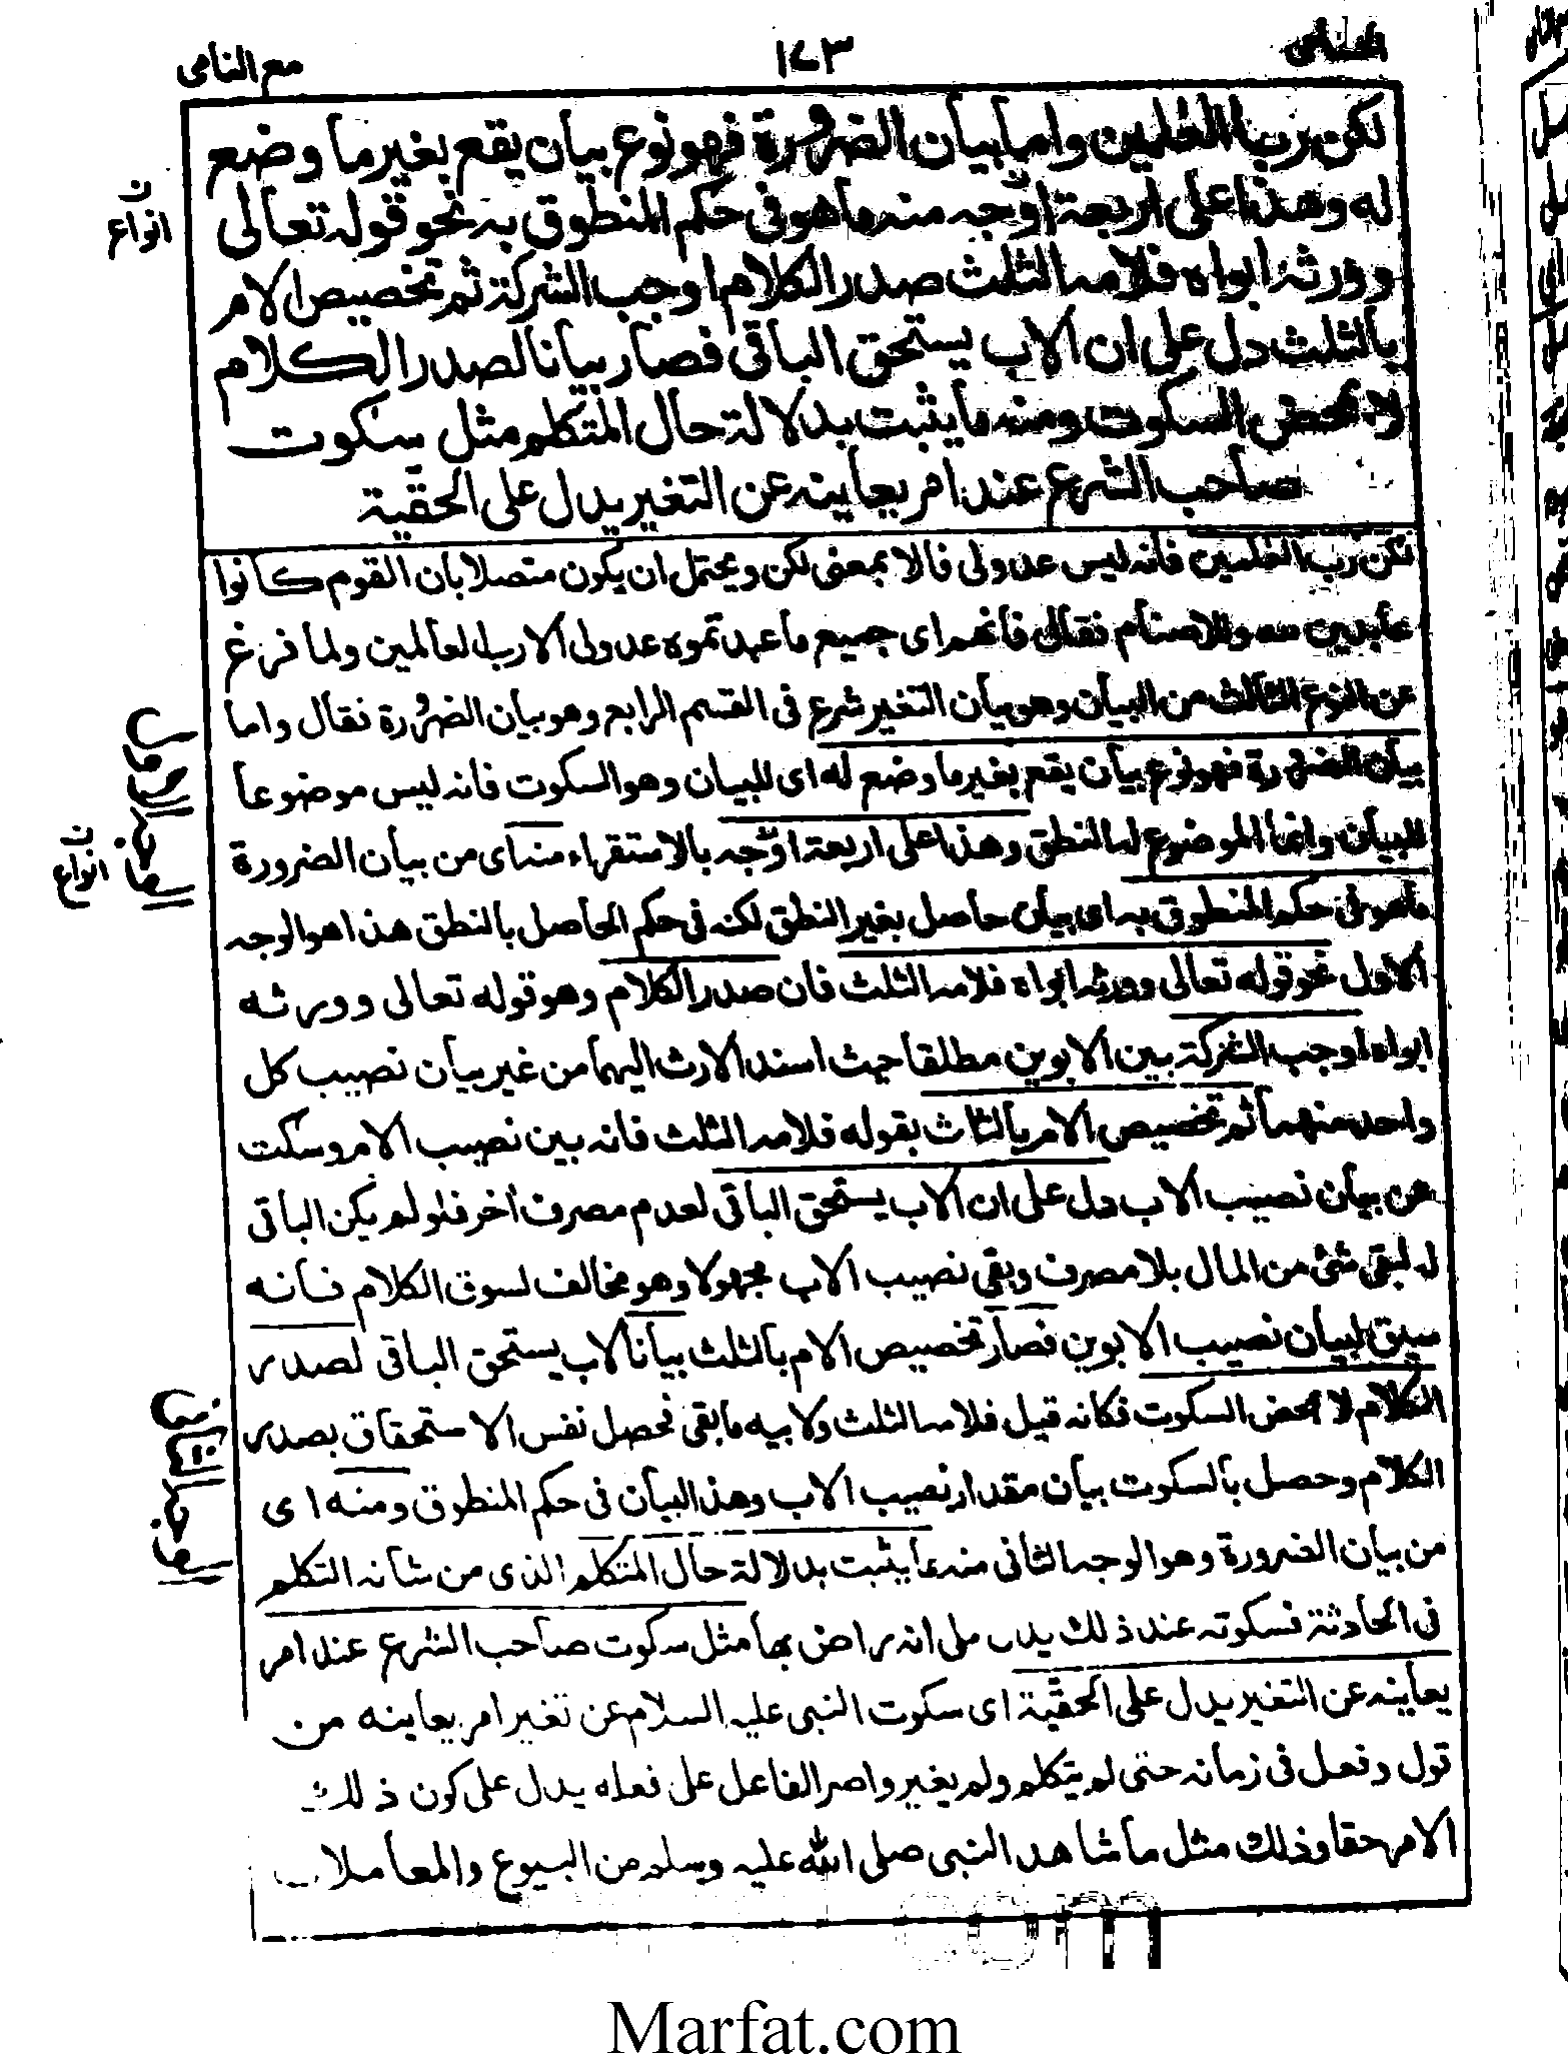 الحسامى
١٧٣
مع النامى
لكن رب العلمين واما بيان الضرورة فهو نوع بيان يقع بغير ما وضع
له وهذا على اربعة اوجه منه ما هو فى حكم المنطوق به نحو قوله تعالى
وورثه ابواه فلامه الثلث صدر الكلام اوجب الشركة ثم تخصيص الام
بالثلث دل على ان الاب يستحق الباقى فصار بيانا لصدر الكلام
لا بمحض السكوت ومنه ما يثبت بدلالة حال المتكلم مثل سكوت
صاحب الشرع عند امر يعاينه عن التغير يدل على الحقية
ن
انواع
لكن رب العلمين فانه ليس عدو لى فالا بمعنى لكن ويحتمل ان يكون متصلا بان القوم كانوا
عابدين معه والاصنام فقال فانهم اى جميع ما عبدتموه عدو لى الا رب لعالمين ولما فرغ
عن النوع الثالث من البيان وهو بيان التغير شرع فى القسم الرابع وهو بيان الضرورة فقال واما
بيان الضرورة فهو نوع بيان يقع بغير ما وضع له اى للبيان وهو السكوت فانه ليس موضوعا
للبيان وانما الموضوع له النطق وهذا على اربعة اوجه بالاستقراء منه اى من بيان الضرورة
ما هو فى حكم المنطوق به اى بيان حاصل بغير النطق لكنه فى حكم الحاصل بالنطق هذا هو الوجه
الاول نحو قوله تعالى وورثه ابواه فلامه الثلث فان صدر الكلام وهو قوله تعالى وورثه
ابواه اوجب الشركة بين الابوين مطلقا حيث اسند الارث اليهما من غير بيان نصيب كل
واحد منهما ثم تخصيص الام بالثلث بقوله فلامه الثلث فانه بين نصيب الام وسكت
عن بيان نصيب الاب دل على ان الاب يستحق الباقى لعدم مصرف أخر فلو لم يكن الباقى
له لبقى شئ من المال بلا مصرف وبقى نصيب الاب مجهولا وهو مخالف لسوق الكلام فانه
سيق لبيان نصيب الابوين فصار تخصيص الام بالثلث بيانا لاب يستحق الباقى لصدر
الكلام لا بمحض السكوت فكانه قيل فلامه الثلث ولابيه مابقى فحصل نفس الاستحقاق بصدر
الكلام وحصل بالسكوت بيان مقدار نصيب الاب وهذا البيان فى حكم المنطوق ومنه اى
من بيان الضرورة وهو الوجه الثانى منه ما يثبت بدلالة حال المتكلم الذى من شأنه التكلم
فى الحادثة فسكوته عند ذلك يدل على انه راض بها مثل سكوت صاحب الشرع عند امر
يعاينه عن التغير يدل على الحقية اى سكوت النبى عليه السلام عن تغير امر يعاينه من
قول وفعل فى زمانه حتى لم يتكلم ولم يغير واصر الفاعل على فعله يدل على كون ذلك
الامر حقا وذلك مثل ما شاهد النبى صلى الله عليه وسلم من البيوع والمعاملات
الوجه الاول
ن
انواع
الوجه الثانى
Marfat.com